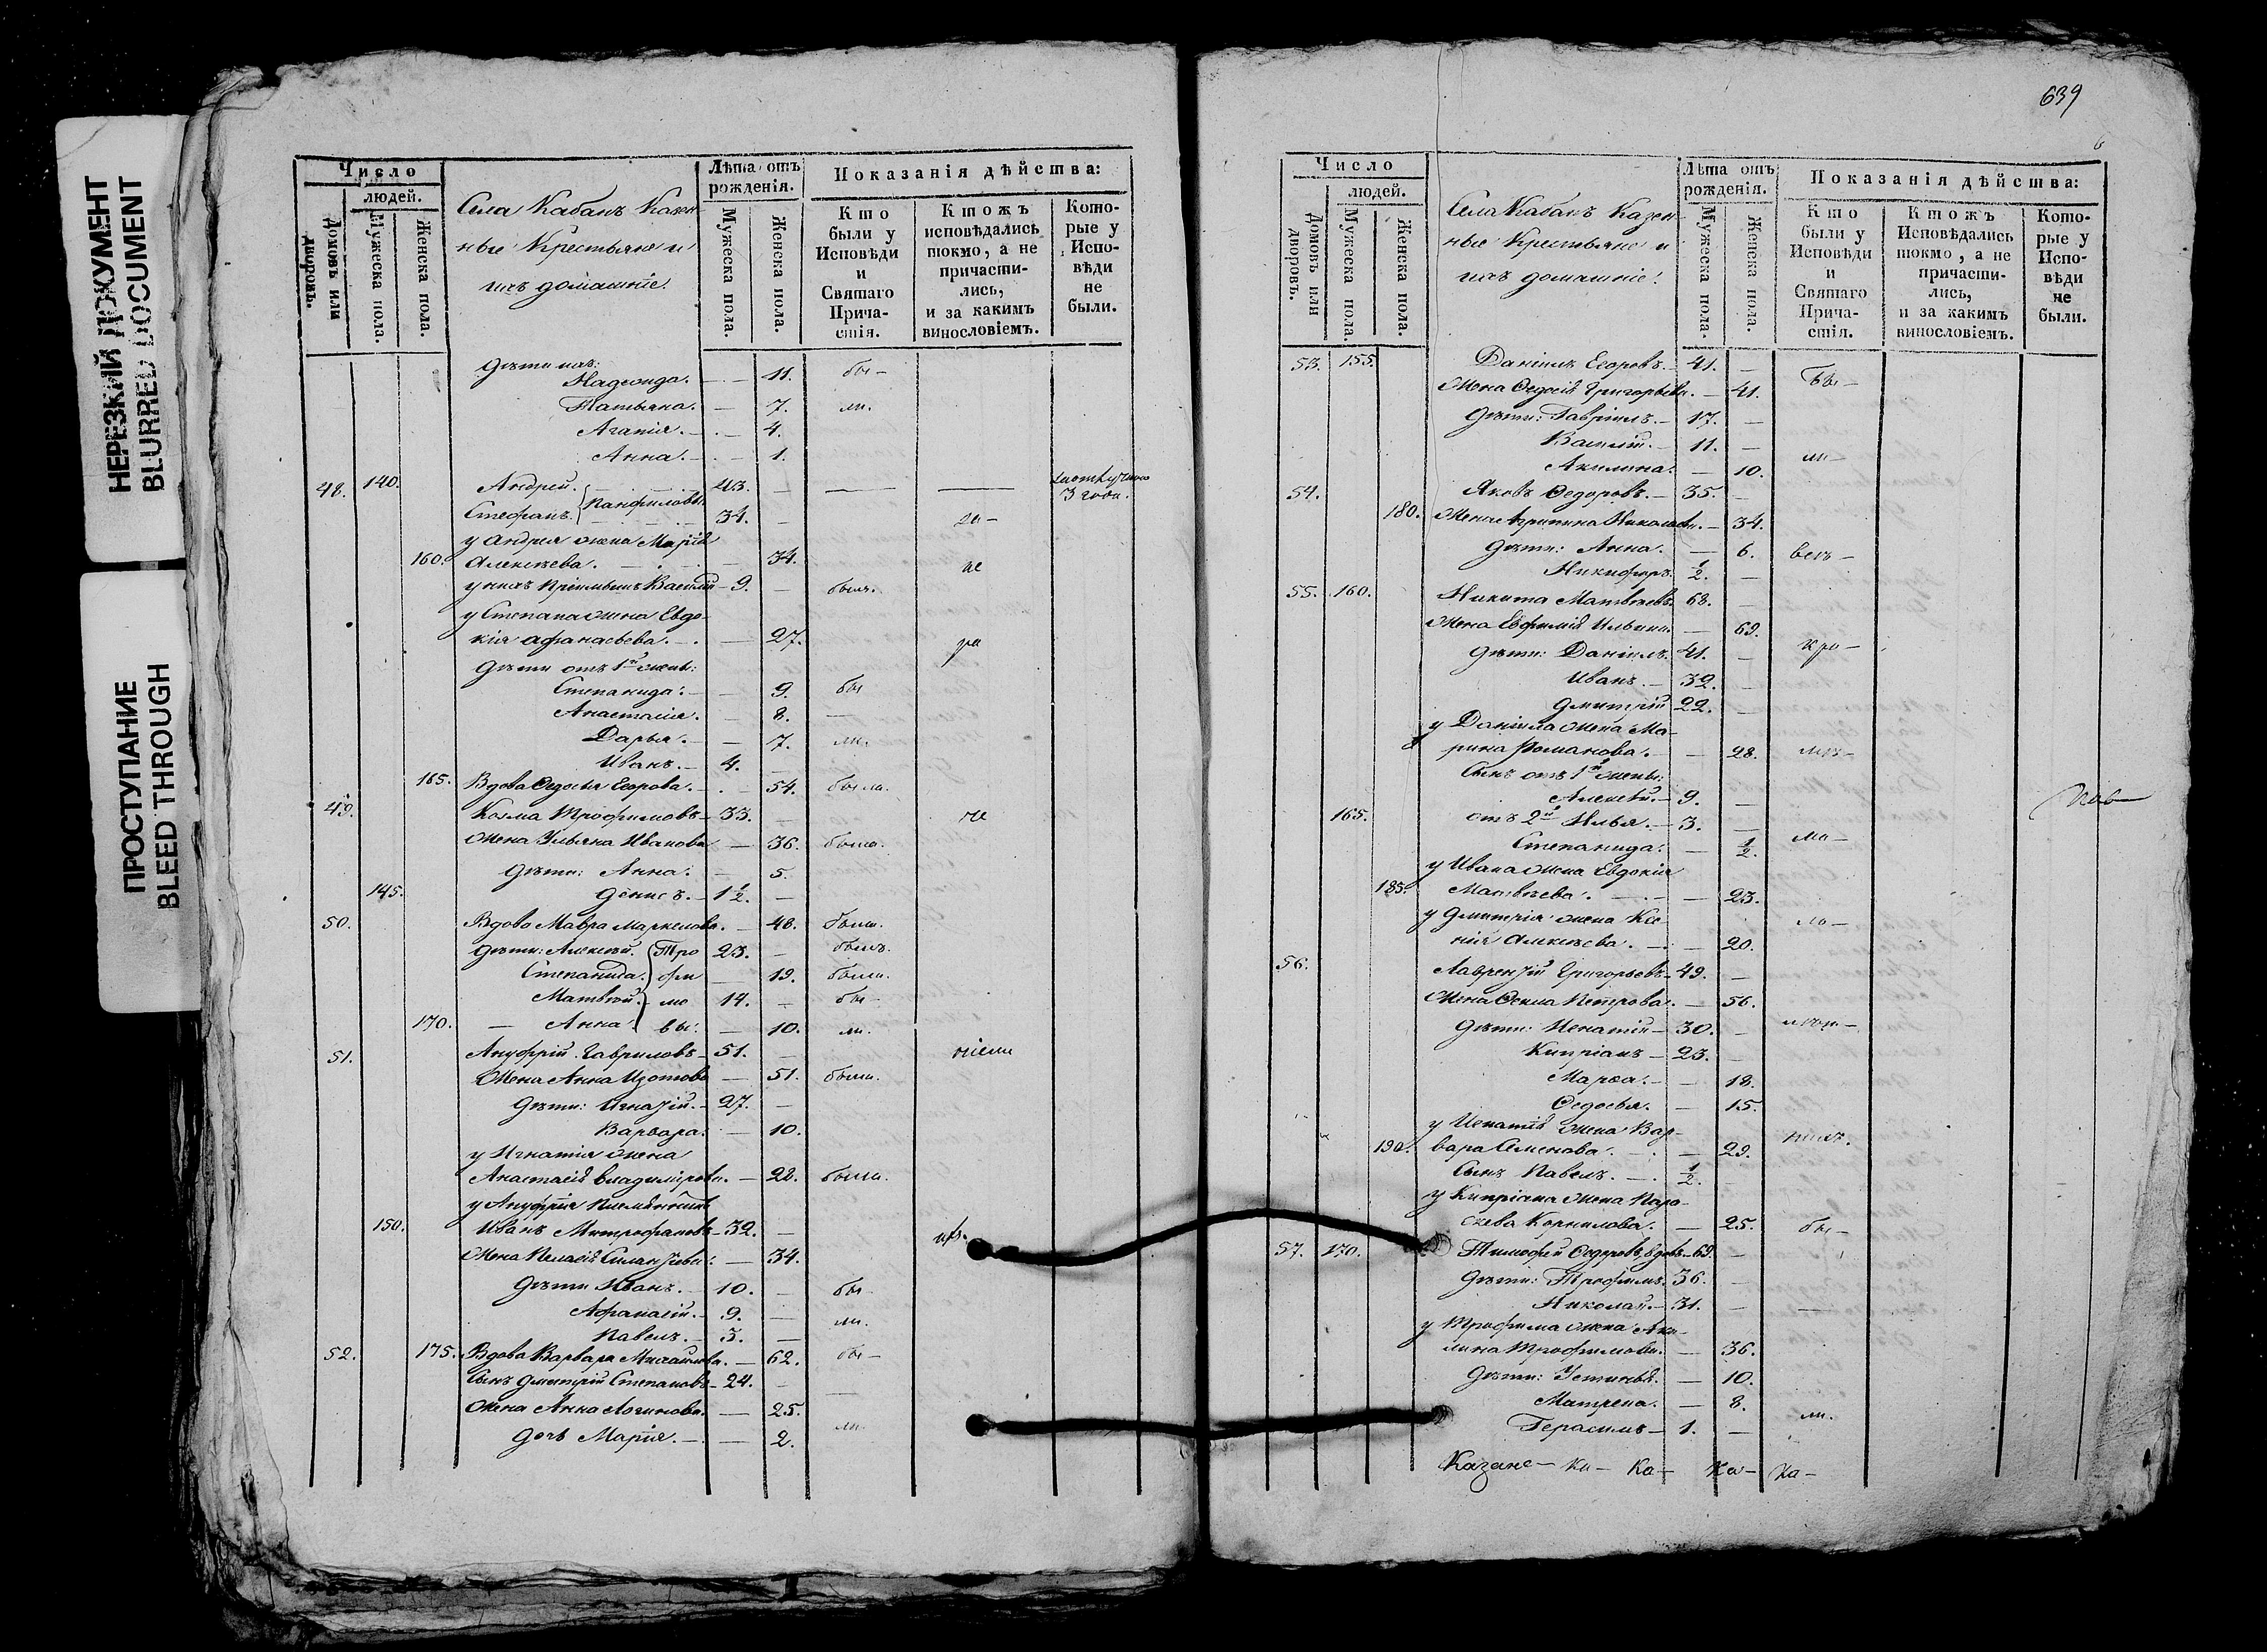 НЕРЕЗКИЙ ДОКУМЕНТ
BLURRED DOCUMENT
ПРОСТУПАНИЕ
BLEED THROUGH
Число
людей.
Домовъ или дворовъ.
Мужеска пола.
Женска пола.
Села Кабанъ Казен-
ные Крестьяне и
ихъ домашніе.
Лѣта отъ рожденія.
Мужеска пола.
Женска пола.
Показанія дѣйства:
Кто были у Исповѣди и Святаго Прича-стія.
Ктожъ исповѣдались токмо, а не причасти-лись, и за какимъ винословіемъ.
Кото-рые у Испо-вѣди не были.
дѣти ихъ:
Надежда. — 11. бы-
Татьяна. — 7. ли.
Агапія. — 4.
Анна. — 1.
48. 140. Андрей. 43. —
Стефанъ. Панфиловы 34. —
у Андрея жена Марія
160. Алексѣева. — 34. не
у нихъ Василій 9. — былъ.
у Степана жена Евдо-
кія Афанасьева. — 27.
дѣти отъ 1й жены:
Степанида. — 9. бы
Анастасія. — 8. —
Дарья. — 7. ли.
Иванъ. 4. —
165. Вдова Федосья Егорова. — 54. была.
49. Козма Трофимовъ 33. —
Жена Ульяна Иванова — 36. была.
дѣти: Анна. — 5.
145. Денисъ. 1 1/2. —
50. Вдова Мавра Маркелова. — 48. была.
дѣти: Алексѣй. Тро 23. — былъ.
Степанида. фи — 19. была.
Матвѣй. мо 14. — бы-
170. — Анна. вы. — 10. ли.
51. Ануфрій Гавриловъ 51. —
Жена Анна Изотова — 51. была.
дѣти: Игнатій. 27. —
Варвара. — 10.
у Игнатія жена
Анастасія Владимірова. — 28. была.
у Ануфрія племянникъ
150. Иванъ Митрофановъ 32. —
Жена Пелагія — 34.
дѣти Иванъ. 10. — бы-
Афанасій. 9. — ли.
Павелъ. 3. —
52. 175. Вдова Варвара Михайлова. — 62. бы-
сынъ Дмитрій Степановъ 24. — —
Жена Анна Логинова. — 25. ли.
дочь Марія. — 2.
639
Число
людей.
Домовъ или дворовъ.
Мужеска пола.
Женска пола.
Села Кабанъ Казен-
ные Крестьяне и
ихъ домашніе.
Лѣта отъ рожденія.
Мужеска пола.
Женска пола.
Показанія дѣйства:
Кто были у Исповѣди и Святаго Прича-стія.
Ктожъ Исповѣдались токмо, а не причасти-лись, и за какимъ винословіемъ.
Кото-рые у Испо-вѣди не были.
53. 155. Даніилъ Егоровъ. 41. — бы-
Жена Федосія Григорьева. — 41.
дѣти: Гавріилъ. 17. —
Василій. 11. — ли-
Акилина. — 10.
54. Яковъ Федоровъ. 35. —
180. Жена Агрипина Николаева. — 34.
дѣти: Анна. — 6.
Никифоръ. 1/2. —
55. 160. Никита Матвѣевъ. 68. —
Жена Евфимія Ильина. — 69.
дѣти: Даніилъ. 41. — кро-
Иванъ. 32. —
Дмитрій 22. —
у Даніила жена Ма-
рина Романова. — 28.
Сынъ отъ 1й жены:
Алексѣй. 9. —
165. отъ 2й Илья. 3. —
Степанида. — 1/2. ма-
у Ивана жена Евдокія
185. Матвѣева. — 23.
у Дмитрія жена Ксе-
нія Алексѣева. — 20. ло-
56. Лаврентій Григорьевъ 49. —
Жена Фекла Петрова. — 56.
дѣти: Игнатій 30. —
Кипріанъ 23. —
Марѳа. — 18.
Федосья. — 15.
у Игнатія жена Вар-
190. вара Семенова. — 29.
Сынъ Павелъ. 1/2. —
у Кипріана жена Пара-
скева Корнилова. — 25. бы-
57. 170. Тимофей Федоровъ, вдовъ 69. —
дѣти: Трофимъ 36. —
Николай. 31. — —
у Трофима жена Аки-
лина Трофимова. — 36.
дѣти: Устинья. — 10.
Матрена. — 8. ли.
Герасимъ 1. —
Казане- ка- ка- ка- ка-